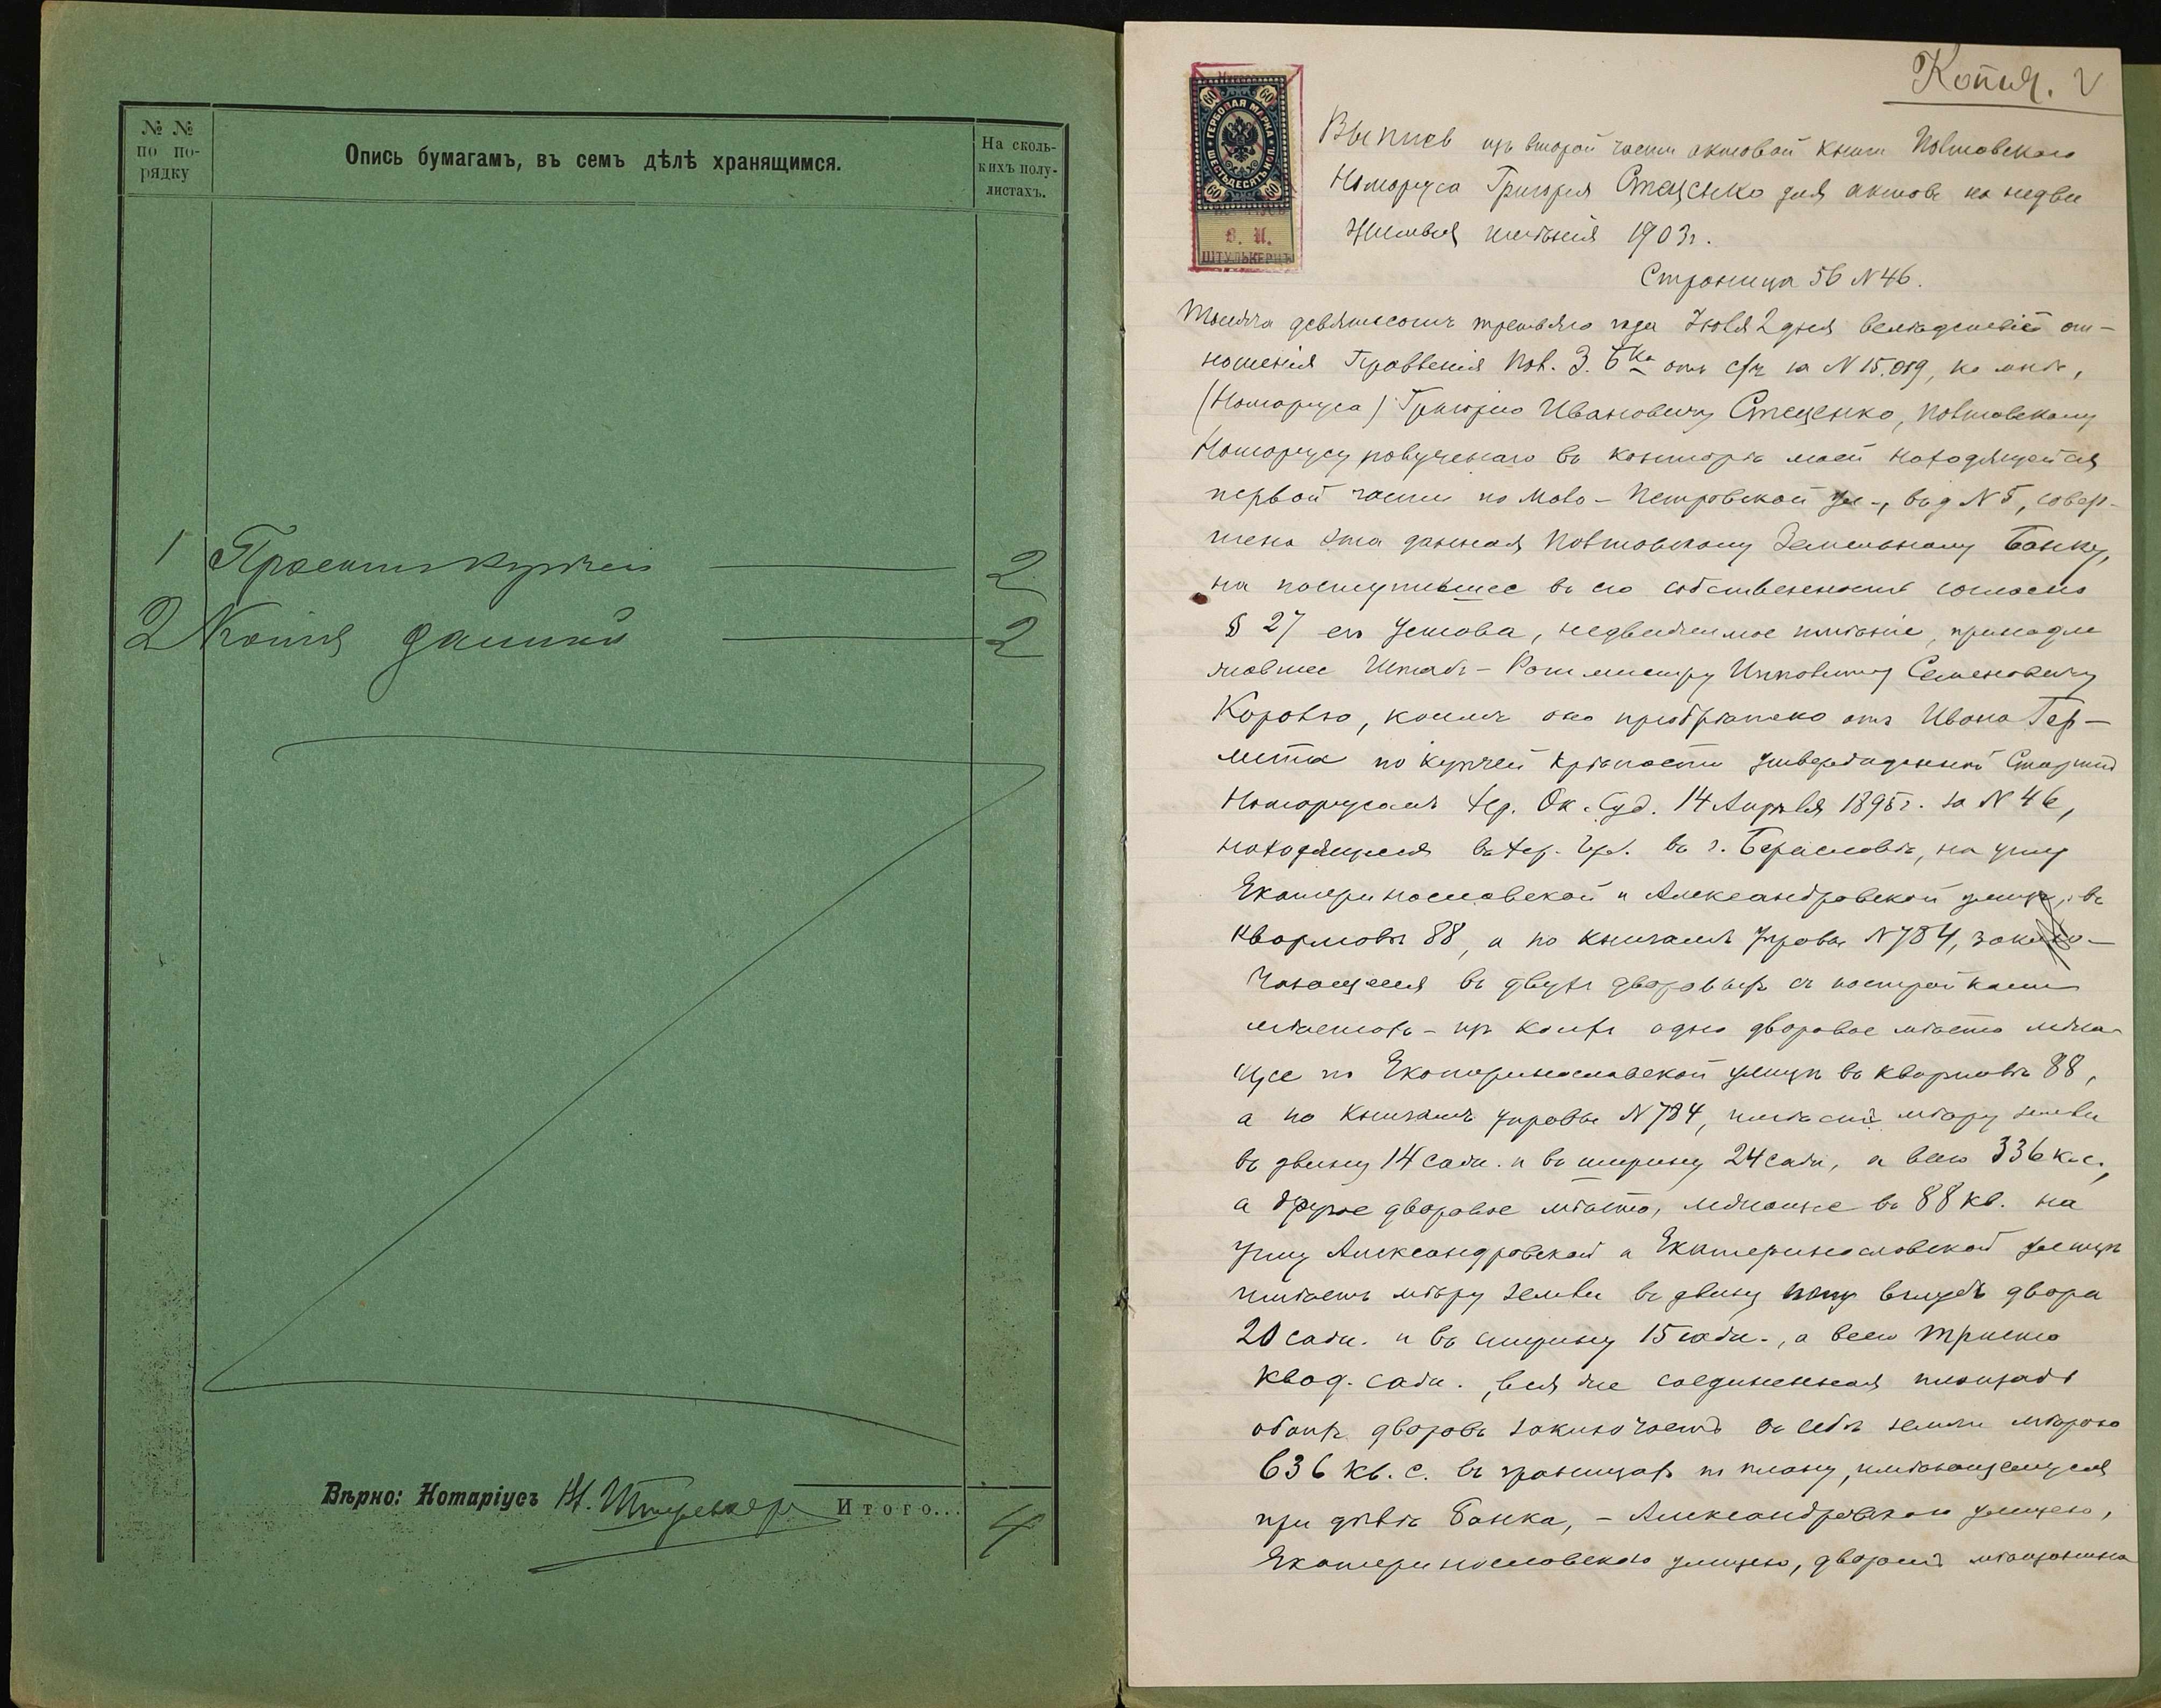 № №
по по-
рядку
Опись бумагамъ, въ семъ дѣлѣ хранящимся.
На сколь-
кихъ полу-
листахъ.
1 Проектъ купчей 2
2 Копія данной 2
Вѣрно: Нотаріусъ
Итого... 4
Копія.
ГЕРБОВАЯ МАРКА
ШЕСТЬДЕСЯТЪ КОП.
60 60
60 60
ШТУЛЬКЕРЦЪ
Выпись изъ второй части актовой книги Полтавскаго
Нотаріуса Григорія Стеценко для актовъ на недви
жимыя имѣнія 1903г.
Страница 56 № 46.
Тысяча девятьсотъ третьяго года Іюля 2 дня вслѣдствіе от-
ношенія Правленія Пол. З. Бка отъ с/м за № 15.019, ко мнѣ,
(Нотаріуса) Григорію Ивановичу Стеценко, Полтавскому
Нотаріусу полученнаго въ конторѣ моей находящейся
первой части по Мало-Петровской ул., въ д № 5, совер-
шена эта данная Полтавскому Земельному Банку,
на поступившее въ его собственность согласно
§ 27 его Устава, недвижимое имѣніе, принадле
жавшее Штабъ-Ротмистру Ипполиту Семеновичу
Коровко, коимъ оно пріобрѣтено отъ Ивана Гер-
по купчей крѣпости утвержденной Старшимъ
Нотаріусомъ Хер. Ок. Суд. 14 Апрѣля 1895г. за № 46,
находящееся въ Хер. Губ. въ г. Бериславѣ, на углу
Екатеринославской и Александровской улицъ, въ
кварталѣ 88, а по книгамъ Управы № 784, заклю-
чающееся въ двухъ дворовыхъ съ постройками
мѣстахъ - изъ коихъ одно дворовое мѣсто лежа-
щее по Екатеринославской улицѣ въ кварталѣ 88,
а по книгамъ Управы № 784, мѣру земли
въ длину 14 саж. и въ ширину 24 саж, а всего 336 к.с.,
а другое дворовое мѣсто, лежащее въ 88 кв. на
углу Александровской и Екатеринославской улицъ
имѣетъ мѣру земли въ длину вглубь двора
20 саж. и въ ширину 15 саж., а всего триста
квад. саж., вся же соединенная площадь
обоихъ дворовъ заключаетъ въ себѣ земли мѣрою
636 кв. с. въ границахъ по плану, имѣющемуся
при дѣлѣ Банка, - Александровскою улицею,
Екатеринославскою улицею, дворомъ мѣщанина